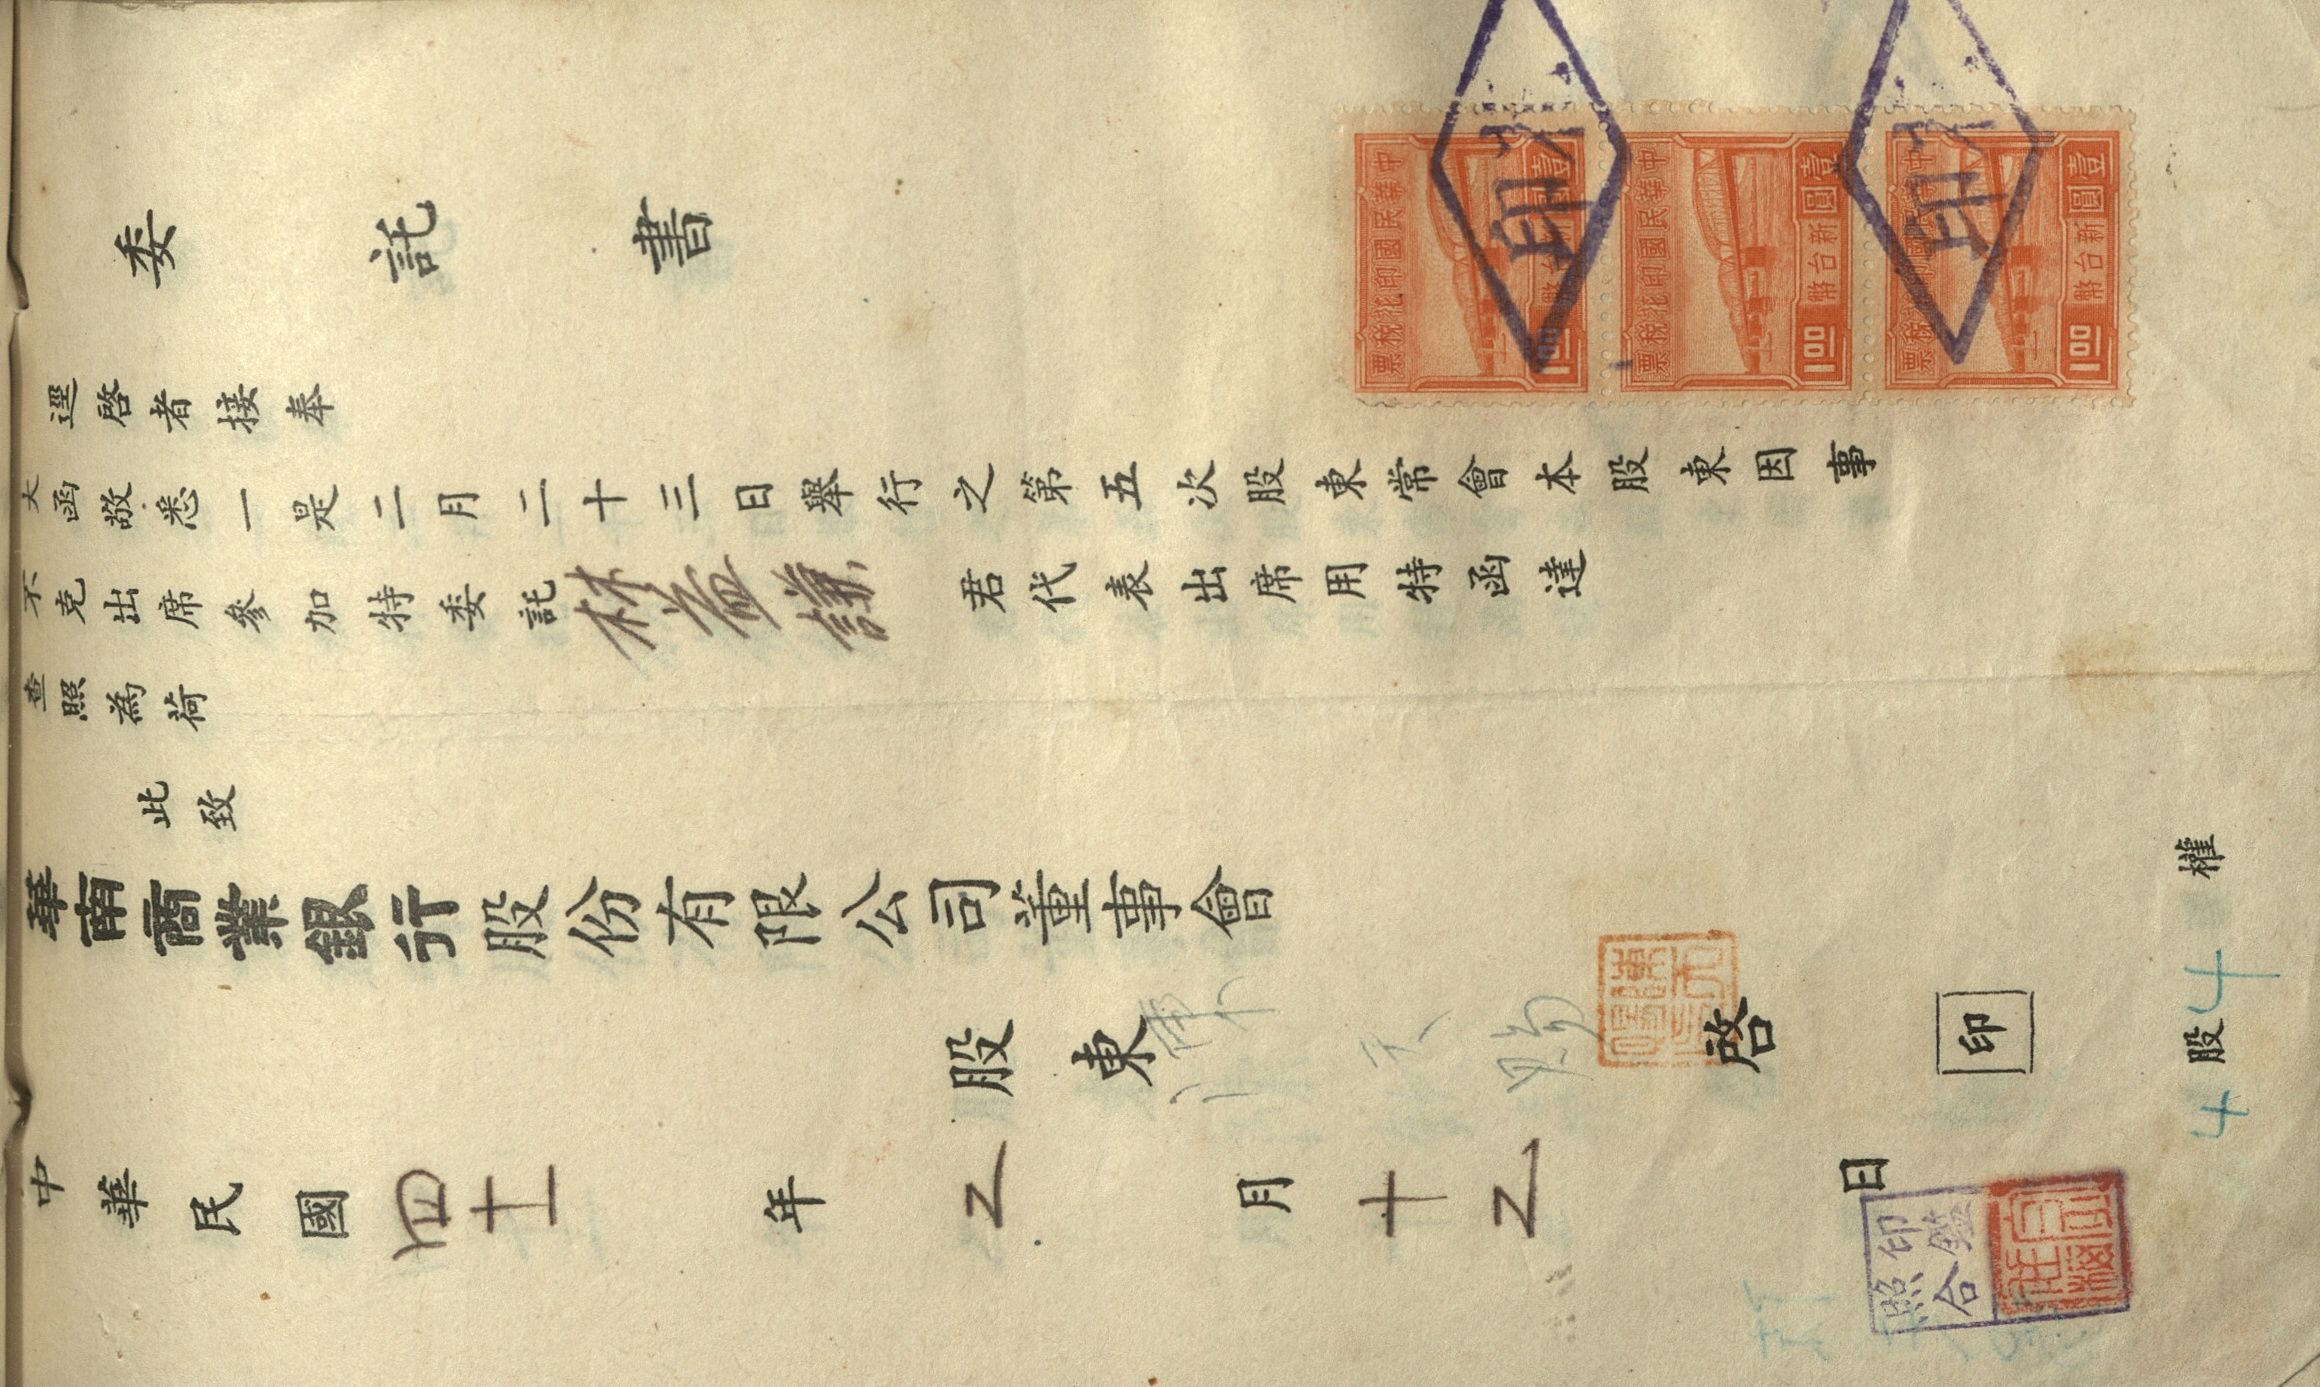 委託書
逕啓者接奉
大函敬悉一是二月二十三日舉行之第五次股東常會本股東因事
不克出席參加特委託林益謙君代表出席用特函達
查照為荷
此致
華南商業銀行股份有限公司董事會
股東陳天賜啓 印
4股 4權
中華民國四十一年2月十2日
印鑑照合
中華民國印花稅票 壹圓 新台幣 1.00
中華民國印花稅票 壹圓 新台幣 1.00
中華民國印花稅票 壹圓 新台幣 1.00
印
印